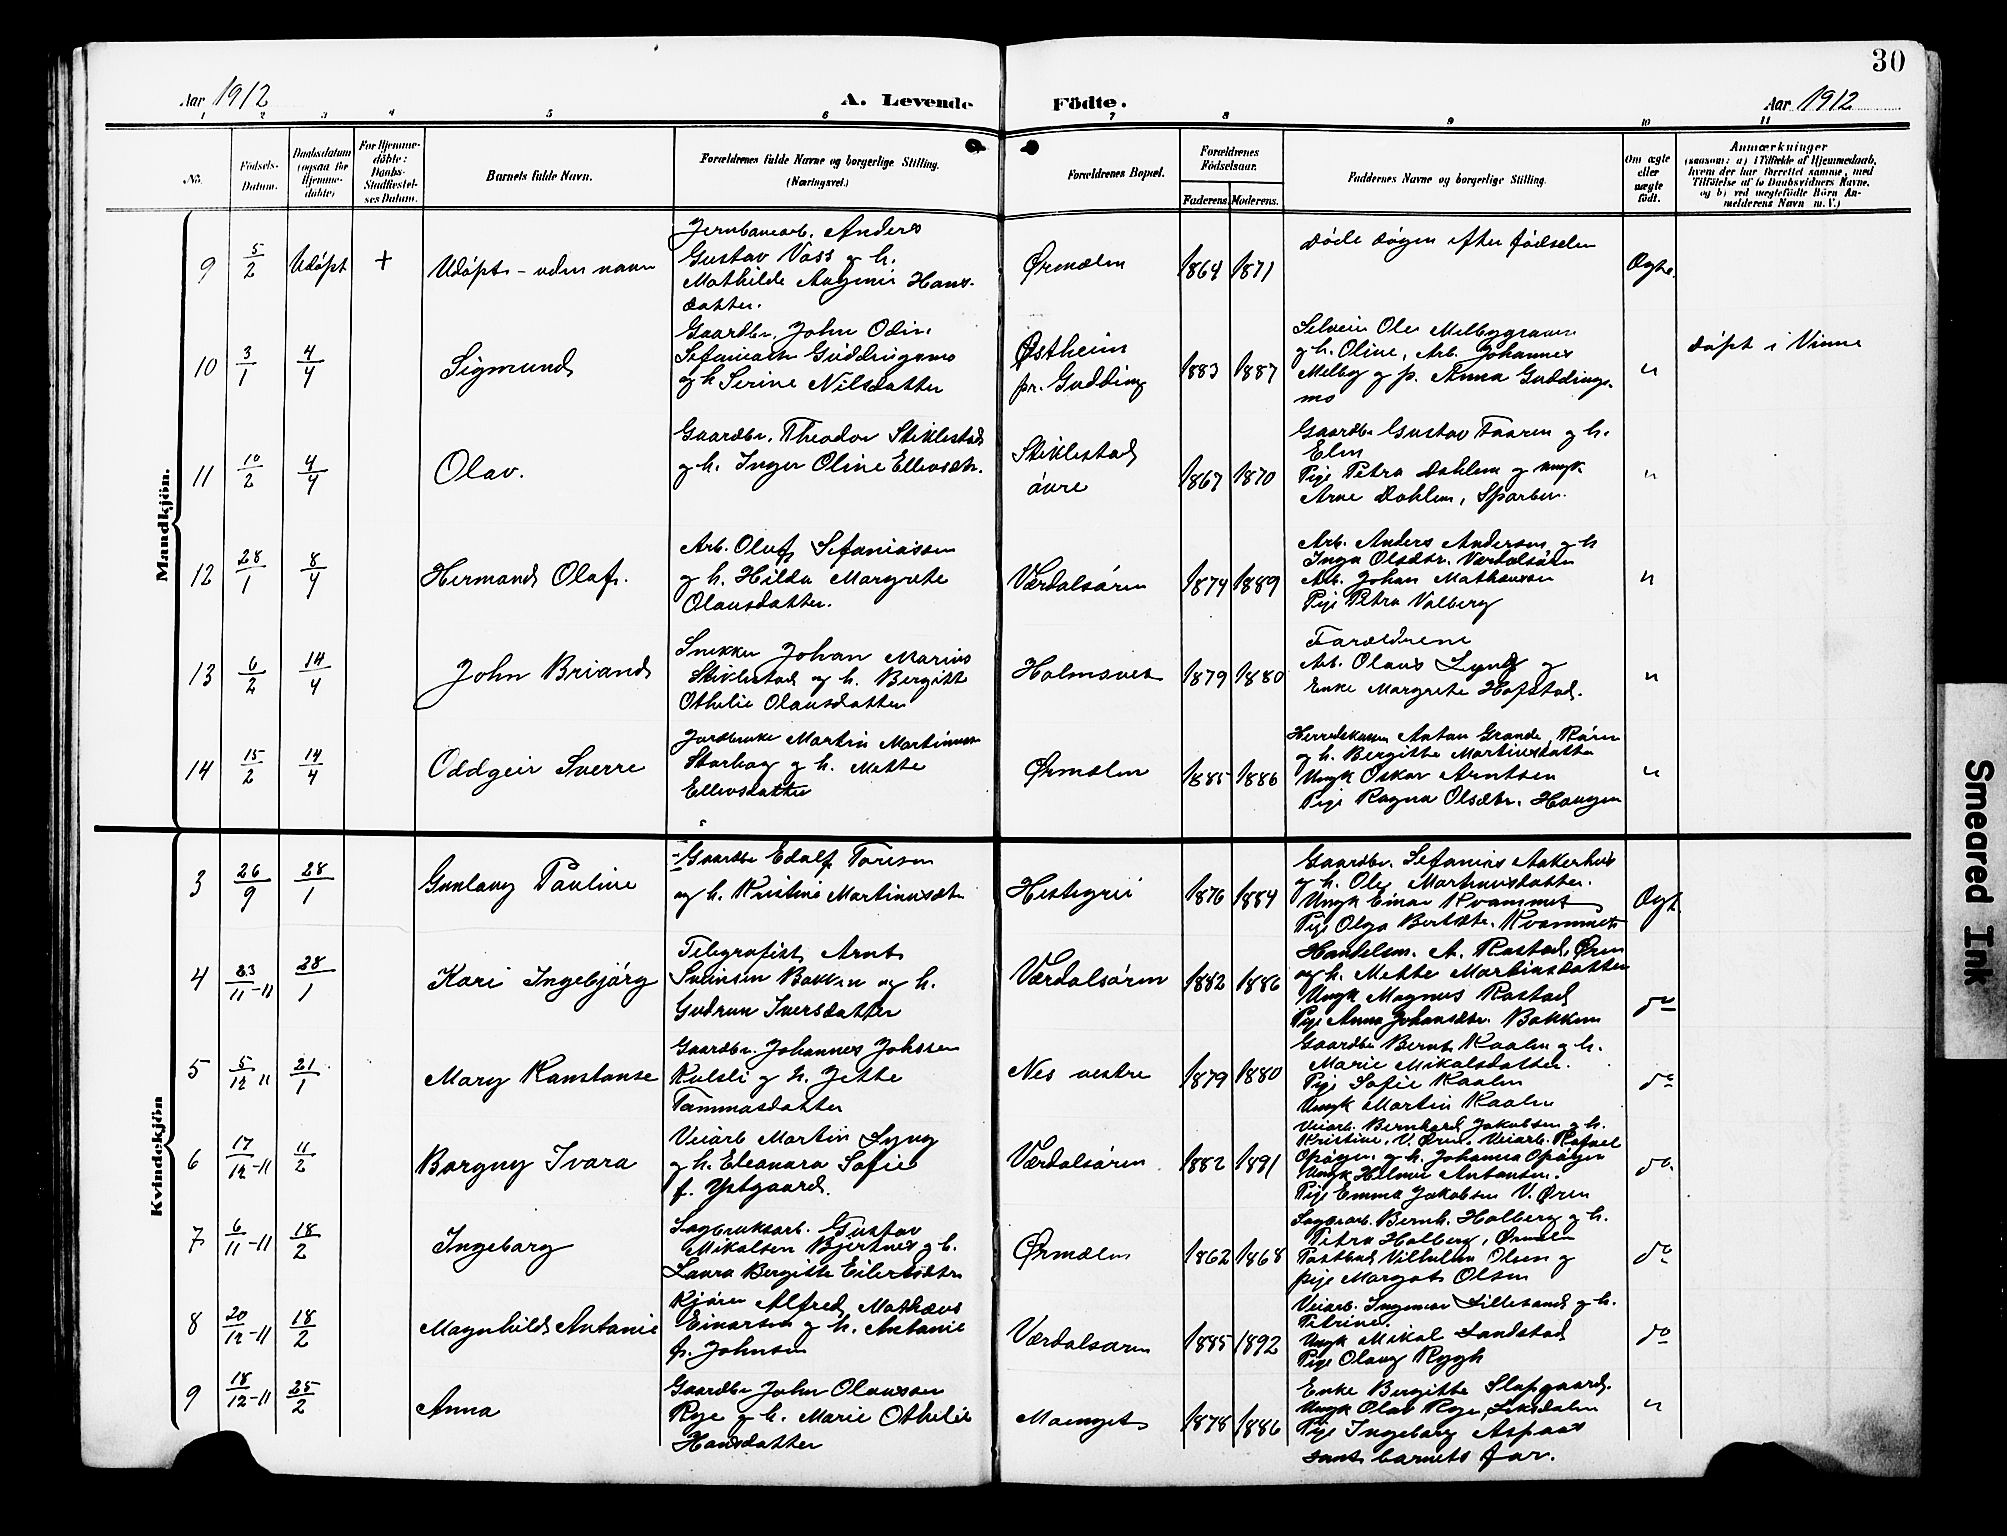 30
Aar 1912
A. Levende
Födte.
Aar 1912
1 2 3 4 5 6 7 8 9 10 11
No.
Födsels-Datum.
Daabsdatum (ogsaa for Hjemmedøbte)
For Hjemmedøbte: Daabs-Stadfæstelses Datum.
Barnets fulde Navn.
Forældrenes fulde Navne og borgerlige Stilling. (Næringsvei.)
Forældrenes Bopæl.
Forældrenes Födselsaar.
Faderens. Moderens.
Faddernes Navne og borgerlige Stilling.
Om ægte eller uægte født.
Anmærkninger
Mandkjön.
9 5/2 Udöpt + Udöpt - uden navn
Jernbanearb. Anders
Gustav Voss og h.
Mathilde Hans-
datter.
Ørmelen 1864 1871
döde dagen efter födselen
Ægte
10 3/1 4/4 Sigmund
Gaardbr. John Odin
Guddingsmo
og h. Serine Nilsdatter
Østheim
pr. Gudding
1883 1887
Selveier Ole Melbygraven
og h. Oline, Arb. Johannes
Melby og p. Anna Guddings-
mo
"
döpt i Vinne
11 10/2 4/4 Olav.
Gaardbr. Theodor Stiklestad
og h. Inger Oline Ellevsdtr.
Stiklestad
övre
1867 1870
Gaardbr. Gustav Faaren og h.
Elen
Pige Petra Dahlen og ungk.
Arne Dahlen, Sparbu.
"
12 28/1 8/4 Hermand Olaf.
Arb. Oluf Sefaniassen
og h. Hilda Margrete
Olausdatter.
Værdalsören 1874 1889
Arb. Anders Andersen og h
Inga Olsdtr. Værdalsören
Arb. Johan Mathiassen
Pige Petra Valberg
"
13 6/2 14/4 John Briand
Snekker Johan Marius
Stiklestad og h. Bergitte
Othelie Olausdatter
Holmsvet 1879 1880
Forældrene
Arb. Olaus Lyng og
Enke Margrete Hofstad.
"
14 15/2 14/4 Oddgeir Sverre
Jordbruker Martin Martinussen
Storhaug og h. Mette
Ellevsdatter
Ørmelen 1885 1886
Herredskasser Anton Grande, Rören
og h. Bergitte Martinsdatter
Ungk Oskar Arntsen
Pige Ragna Olsdtr. Haugen
"
Kvindekjön
3 26/9 28/1 Gunlaug Pauline
Gaardbr Edolf Toresen
og h. Kristine Martinusdtr
Hestegrei 1876 1884
Gaardbr. Sefanias Aakerhus
og h. Ole Martinusdatter.
Ungk Einar Kvammet
Pige Olga Berntdtr. Kvammet
Ægt.
4 23/11-11 28/1 Kari Ingebjörg
Telegrafist Arnt
Sveinsen Bakken og h.
Gudrun Iversdatter
Værdalsören 1882 1886
Handelsm. A. Rostad, Ören
og h. Mette Martinsdatter
Ungk Magnus Rostad
Pige Anna Johansdtr. Bakken
do
5 5/12 11 21/1 Mary Konstanse
Gaardbr. Johannes Johssen
Kulsli og h. Jette
Tommasdatter
Nes vestre 1879 1880
Gaardbr Bernt Kaalen og h.
Marie Mikalsdatter.
Pige Sofie Kaalen
Ungk Martin Kaalen
do
6 17/12-11 11/2 Borgny Ivara
Veiarb Martin Lyng
og h. Eleanora Sofie
f. Ystgaard.
Værdalsören 1882 1891
Veiarb. Bernhard Jakobsen og h.
Kristine, V. Ören. Veiarb. Rafael
Opöyen og h. Johanna Opöyen
Ungk Helmer Antonsen.
Pige Emma Jakobsen V. Ören
do.
7 6/11-11 18/2 Ingeborg
Sagbruksarb. Gustav
Mikalsen Bjertnes og h.
Laura Bergitte Eilertsdtr
Ørmelen 1862 1868
Sagarb. Bernh. Holberg og h.
Petra Holberg, Örmelen
Postbud Vilhelm Olsen og
pige Margot Olsen
do
8 20/12-11 18/2 Magnhild Antonie
Kjörer Alfred Mathæus
Einarsen og h. Antonie
f. Johnsen
Værdalsören 1885 1892
Veiarb. Ingemar Lillesand og h.
Petrine.
Ungk Mikal Landstad
Pige Olaug Rygh
do
9 18/12-11 25/2 Anna
Gaardbr John Olaussen
Roge og h. Marie Othelie
Hansdatter
1878 1886
Enke Bergitte Slapgaard.
Ungk Olav Roge, Leksdalen
Pige Ingeborg Aspaas
samt barnets far.
"
Smeared Ink